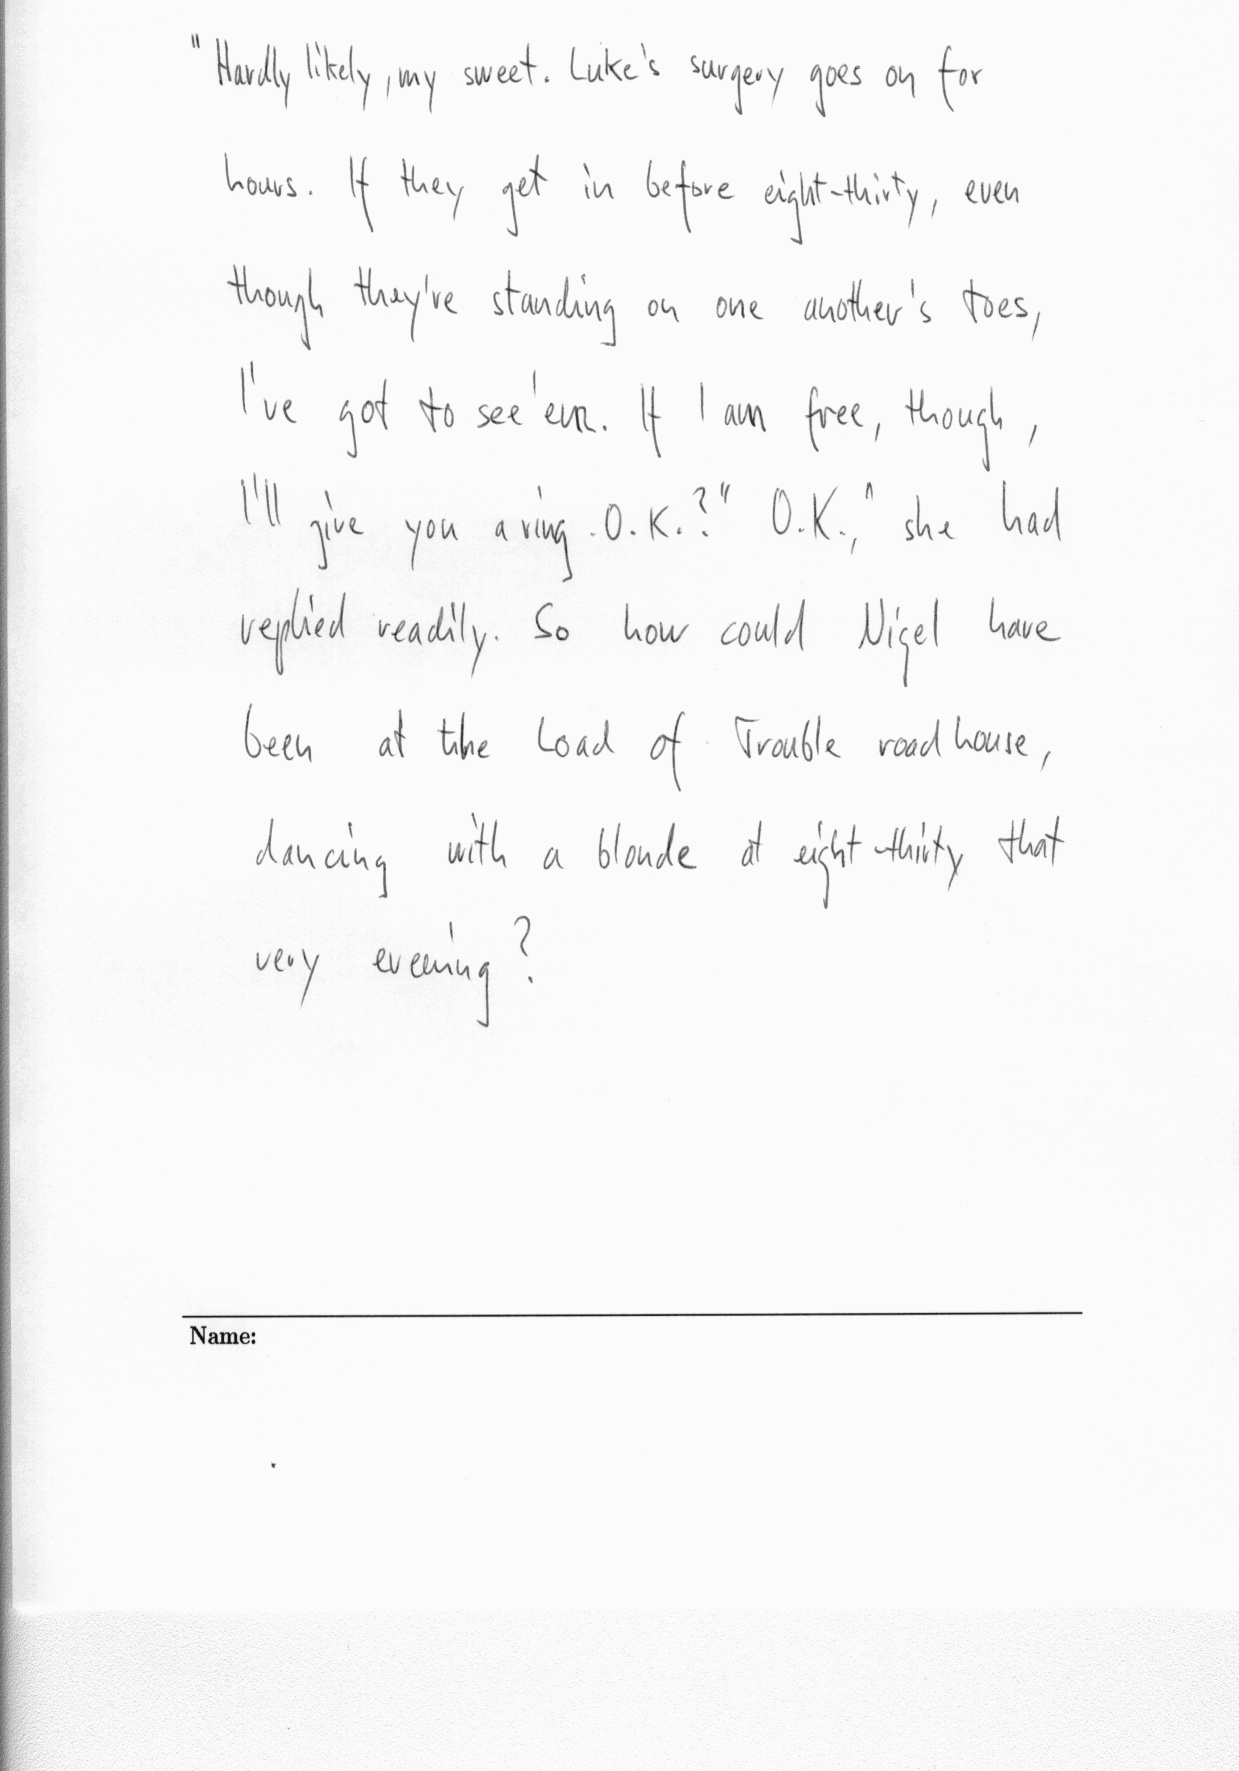 "Hardly likely, my sweet. Luke's surgery goes on for
hours. If they get in before eight-thirty, even
though they're standing on one another's toes,
I've got to see 'em. If I am free, though,
I'll give you a ring. O.K.?" O.K.," she had
replied readily. So how could Nigel have
been at the Load of Trouble roadhouse,
dancing with a blonde at eight-thirty that
very evening?
Name: